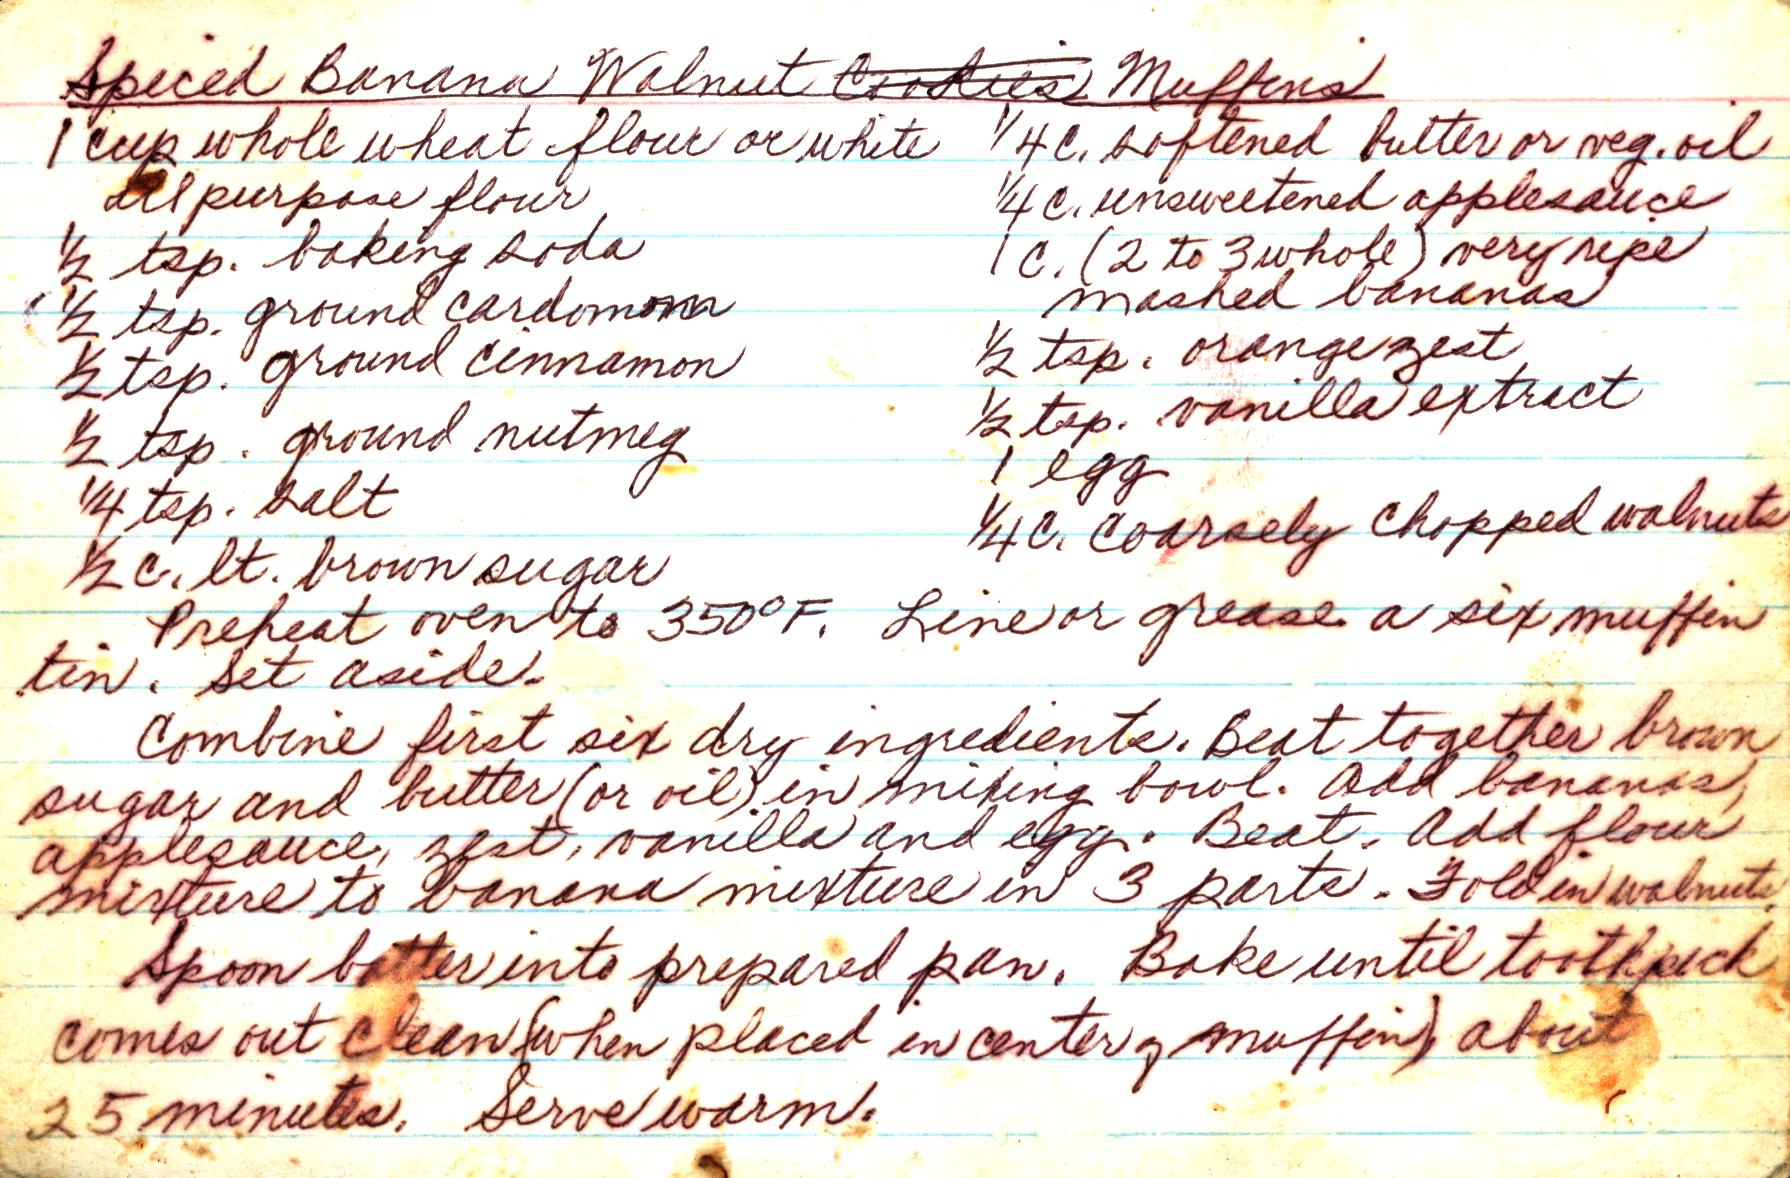 Spiced Banana Walnut Cookies Muffins
1 cup whole wheat flour or white
all purpose flour
1/2 tsp. baking soda
1/2 tsp. ground cardomom
1/2 tsp. ground cinnamon
1/2 tsp. ground nutmeg
1/4 tsp. salt
1/2 c. lt. brown sugar
1/4 c. softened butter or veg. oil
1/4 c. unsweetened applesauce
1 c. (2 to 3 whole) very ripe
mashed bananas
1/2 tsp. orange zest
1/2 tsp. vanilla extract
1 egg
1/4 c. coarsely chopped walnuts
Preheat oven to 350°F. Line or grease a six muffin
tin. Set aside.
Combine first six dry ingredients. Beat together brown
sugar and butter (or oil) in mixing bowl. Add bananas,
applesauce, zest, vanilla and egg. Beat. Add flour
mixture to banana mixture in 3 parts. Fold in walnuts.
Spoon batter into prepared pan. Bake until toothpick
comes out clean (when placed in center of muffin) about
25 minutes. Serve warm.